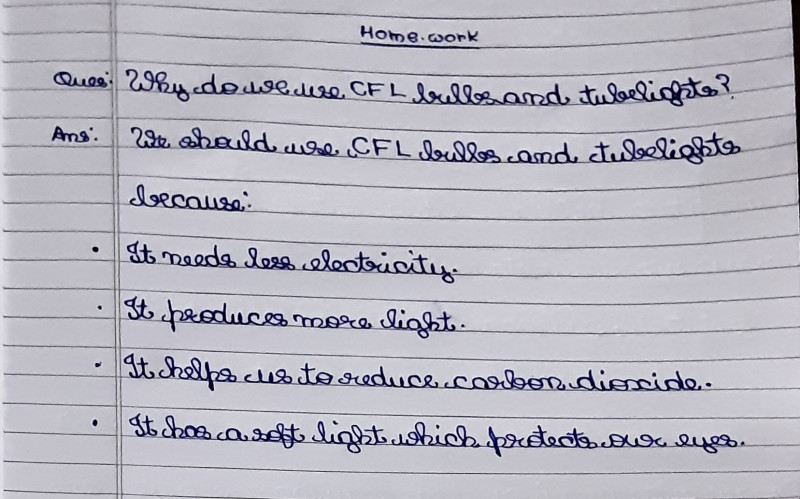 Home.work
Ques: Why do we use CFL bulbs and tubelights?
Ans: We should use CFL bulbs and tubelights
because:
• It needs less electricity.
• It produces more light.
• It helps us to reduce carbon dioxide.
• It has a soft light which protects our eyes.